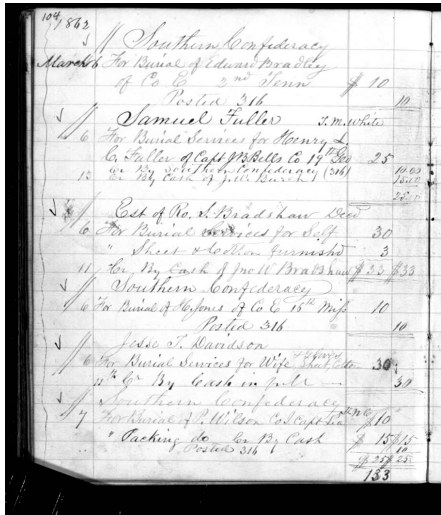 104 1862
// Southern Confederacy
March 6 For Burial of Edward Bradley
of Co E 2nd Tenn $ 10
Posted 316 10
// Samuel Fuller T. M. White
6 For Burial Services for Henry L
C. Fuller of Capt J B Bells Co 19th Geo 25
Cr By Southern Confederacy (316) 10.00
12 Cr By Cash of 15.00
25.00
// Est of Ro. S. Bradshaw Decd
6 For Burial Services for Self 30
" Sheet & Cotton furnishd 3
11 Cr By Cash of Jno W Bradshaw $33 $33
// Southern Confederacy
6 For Burial of H. Jones of Co E 15th Miss 10
Posted 316 10
// Jesse T. Davidson
6 For Burial Services for Wife 30
11th Cr By Cash in full 30
// Southern Confederacy
7 For Burial of P. Wilson Co I Capt $10
" Packing do Cr By Cash $ 15 $15
" Posted 316 10
$25 $25
133